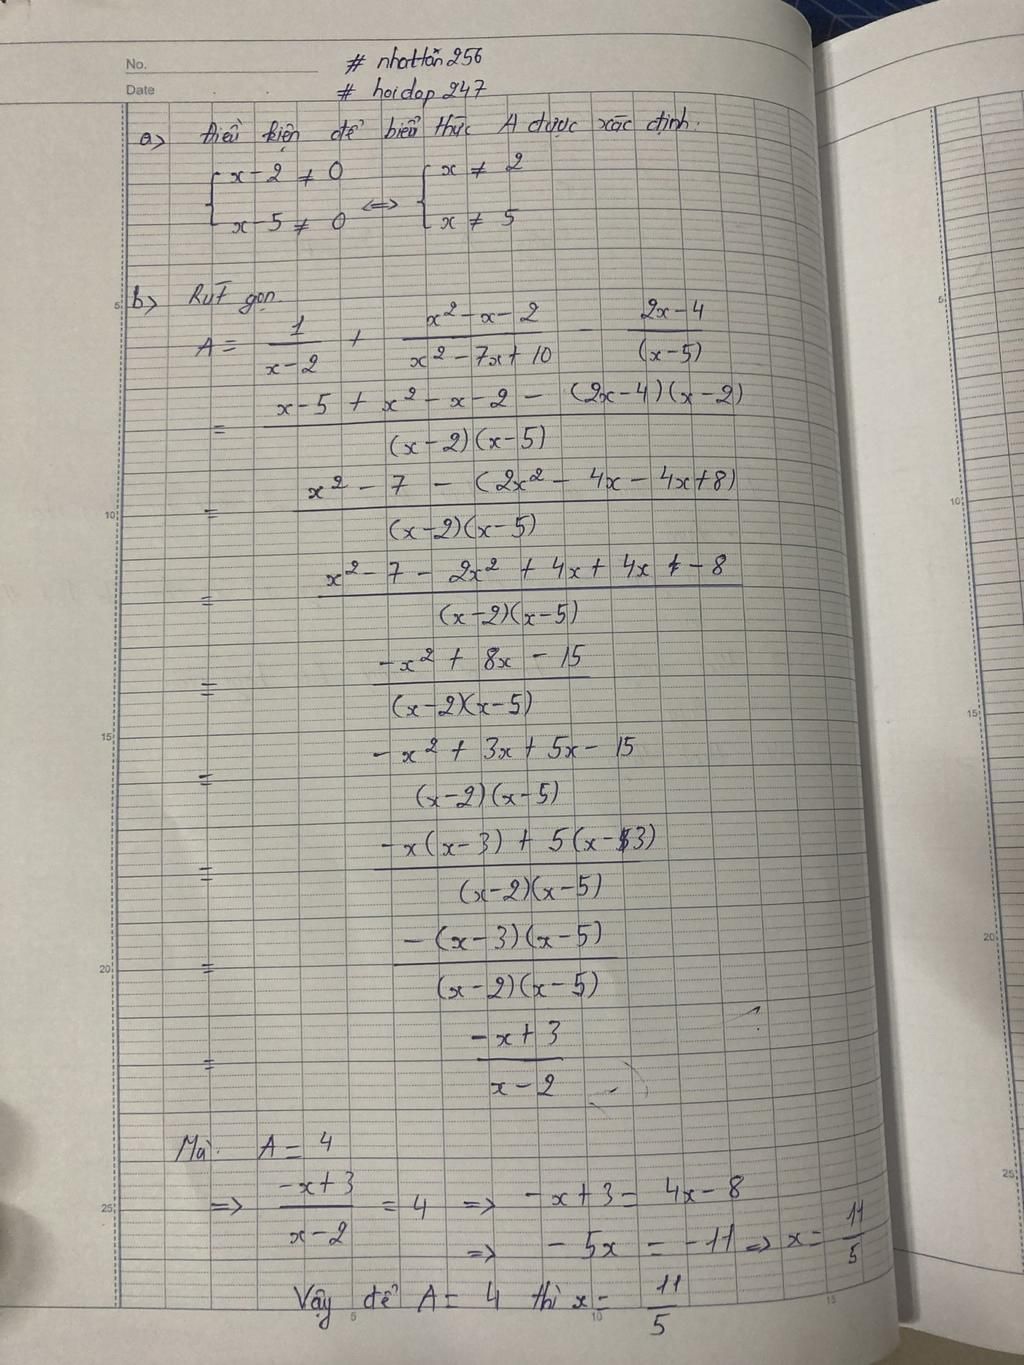 No. # nhattân256
Date # hoidap247
a> Điều kiện để biểu thức A được xác định:
{ x - 2 ≠ 0 <=> { x ≠ 2
x - 5 ≠ 0 x ≠ 5
b> Rút gọn
A = 1/(x-2) + (x² - x - 2)/(x² - 7x + 10) - (2x - 4)/(x-5)
= (x - 5 + x² - x - 2 - (2x-4)(x-2))/((x-2)(x-5))
= (x² - 7 - (2x² - 4x - 4x + 8))/((x-2)(x-5))
= (x² - 7 - 2x² + 4x + 4x - 8)/((x-2)(x-5))
= (-x² + 8x - 15)/((x-2)(x-5))
= -x² + 3x + 5x - 15
(x-2)(x-5)
= (-x(x-3) + 5(x-3))/((x-2)(x-5))
= (-(x-3)(x-5))/((x-2)(x-5))
= (-x+3)/(x-2)
Mà: A = 4
=> (-x+3)/(x-2) = 4 => -x+3 = 4x-8
=> -5x = -11 => x = 11/5
Vậy để A = 4 thì x = 11/5
5
10
15
20
25
5
10
15
5
10
15
20
25